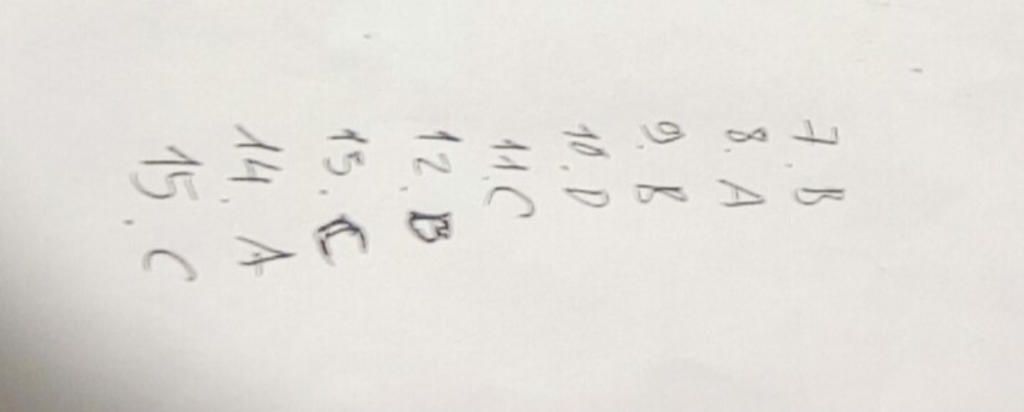 7. B
8. A
9. B
10. D
11. C
12. B
13. C
14. A
15. C